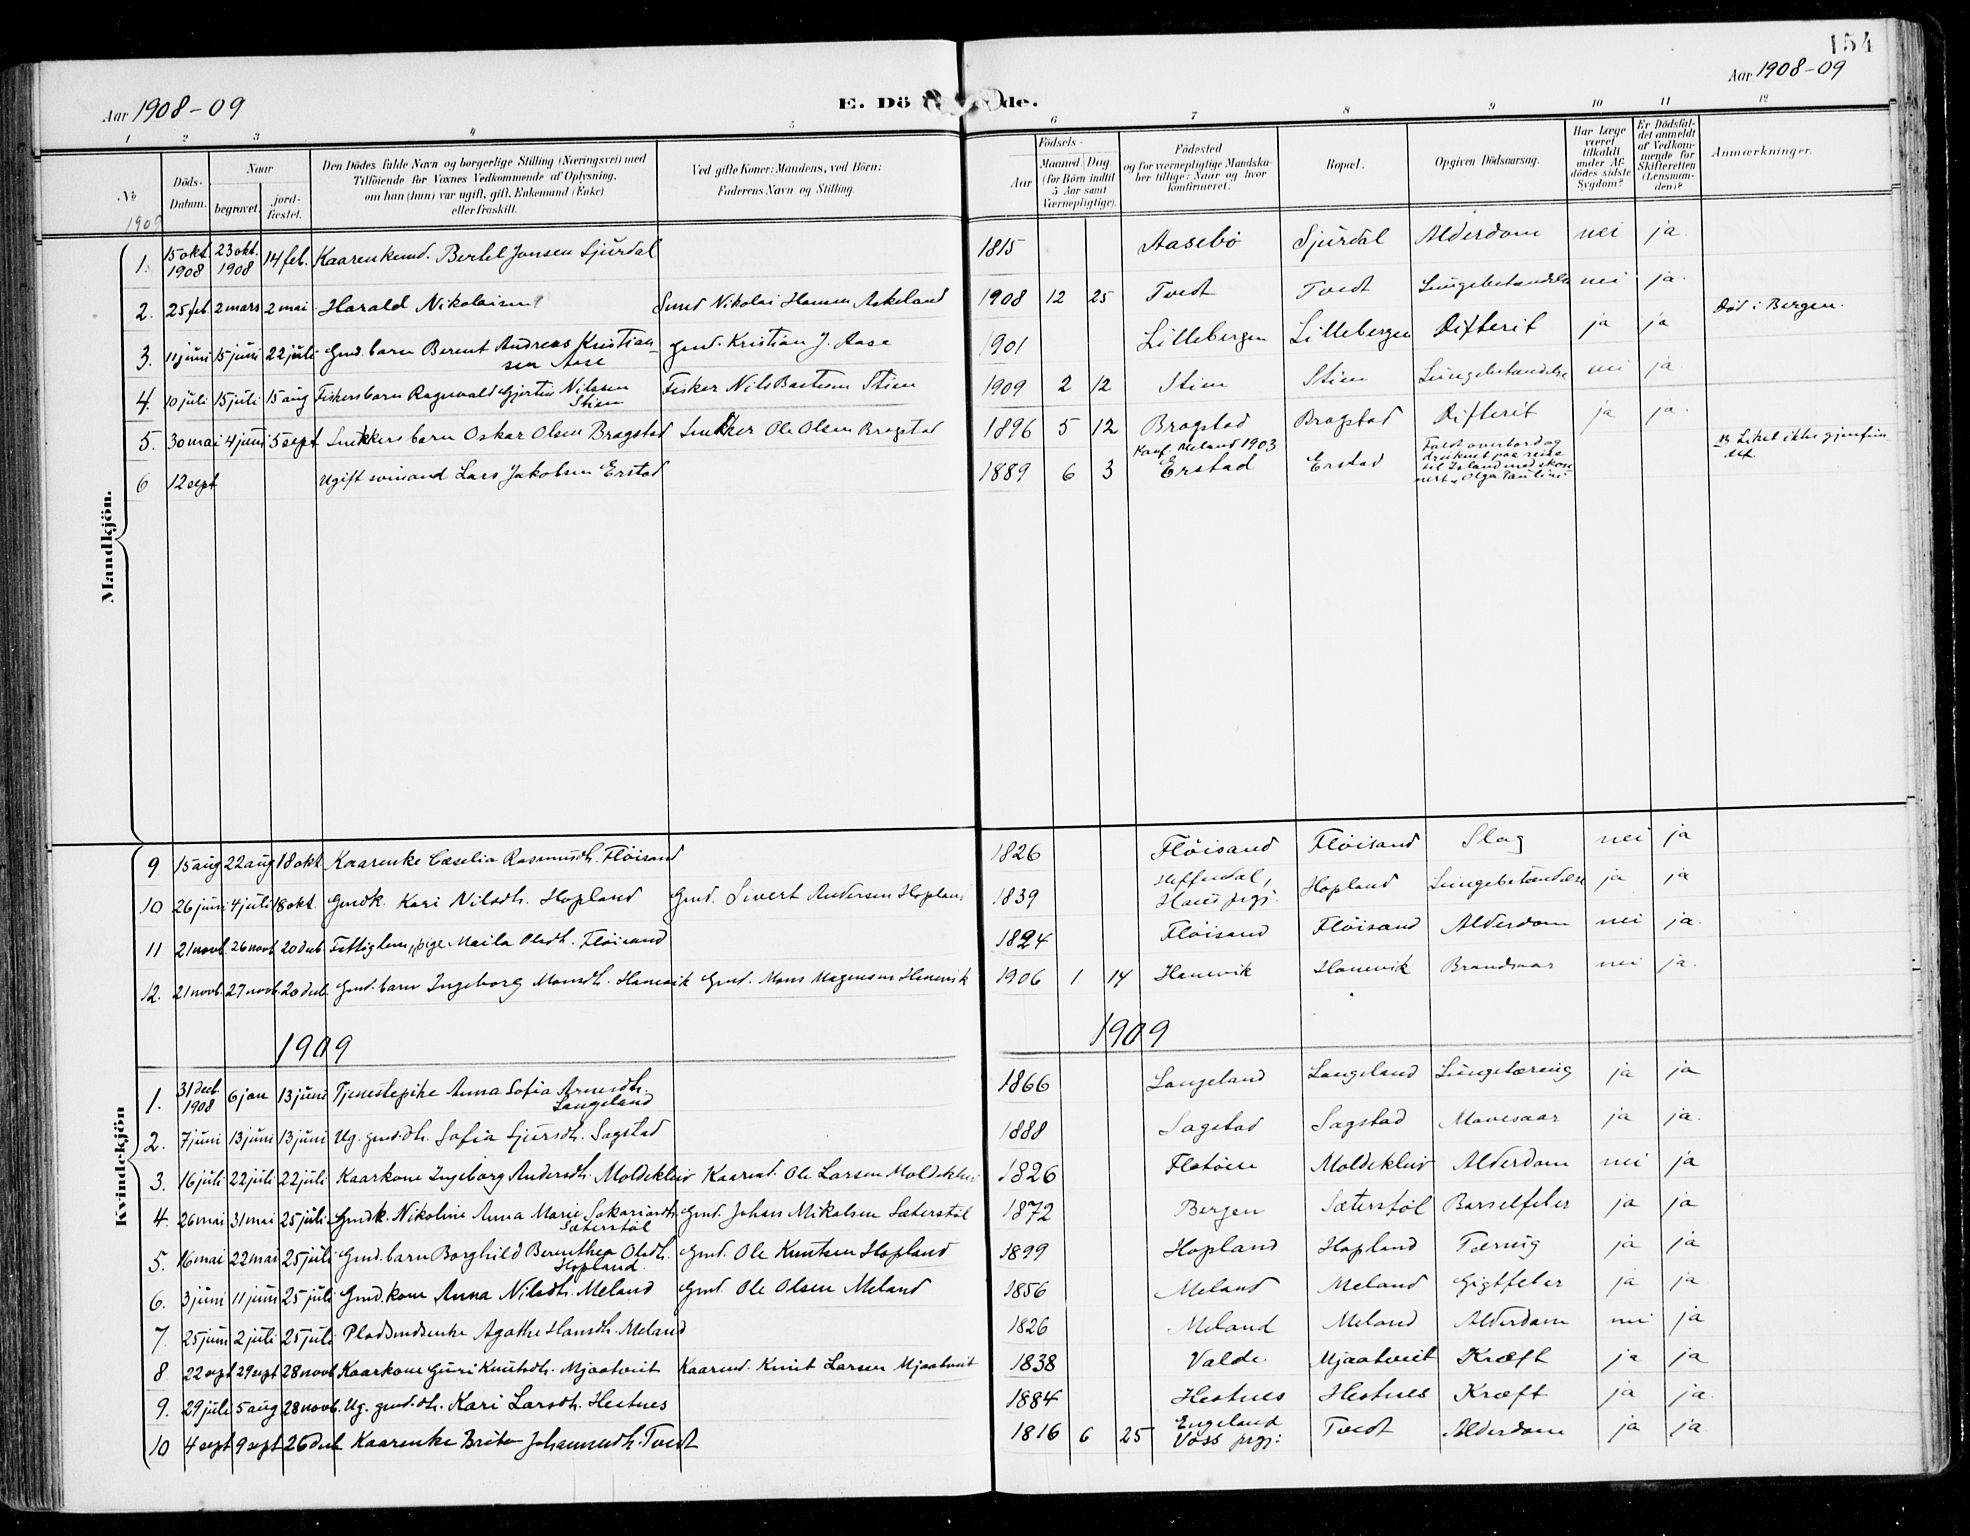 154
Aar 1908-09
E. Dö de.
Aar 1908-09
1 2 3 4 5 6 7 8 9 10 11 12
No
Döds-Datum.
Naar
begravet.
jord-fæstet.
Den Dödes fulde Navn og borgerlige Stilling (Næringsvei) med
Tilföiende for Voxnes Vedkommende af Oplysning,
om han (hun) var ugift, gift, Enkemand (Enke)
eller fraskilt.
Ved gifte Koner: Mandens, ved Börn:
Faderens Navn og Stilling.
Födsels-
Aar
Maaned
Dag
(for Börn indtil
5 Aar samt
Værnepligtige).
Födested
og for værnepligtige Mandska-
ber tillige: Naar og hvor
konfirmeret.
Bopæl.
Opgiven Dödsaarsag.
Har Læge
været
tilkaldt
under Af-
dödes sidste
Sygdom?
Er Dödsfal-
det anmeldt
af Vedkom-
mende for
Skifteretten
(Lensman-
den)?
Anmærkninger.
1909
Mandkjön.
1. 15 okt. 1908 23 okt. 1908 14 feb. Kaarenkemd. Bertel Jonsen Sjurdal 1815 Aasebø Sjurdal Alderdom nei ja.
2. 25 feb. 2 mars 2 mai Harald Nikolaisen Smed Nikolai Hansen Askeland 1908 12 25 Tvedt Tvedt Lungebetændelse nei ja.
3. 11 juni 15 juni 22 juli Gmd. barn Berent Andreas Kristian-
sen Aase Gmd. Kristian J. Aase 1901 Lillebergen Lillebergen Difterit ja ja Død i Bergen.
4. 10 juli 15 juli 15 aug Fiskersbarn Ragnvald Gjertin Nilssen
Stien Fisker Nils Bertesen Stien 1909 2 12 Stien Stien Lungebetændelse nei ja.
5. 30 mai 4 juni 5 sept Snekkersbarn Oskar Olsen Bragstad Snekker Ole Olsen Bragstad 1896 5 12 Bragstad Bragstad Difterit ja ja.
6 12 sept Ugift Lars Jakobsen Erstad 1889 6 3 Konf. Meland 1903
Erstad Erstad Faldt overbord og
druknet paa reise
til Island med skon-
nert "Olga Pauline" Liket ikke gjenfun
det.
Kvindekjön
9 15 aug 22 aug 18 okt Kaarenke Cæselia Rasmusdh. Fløisand 1826 Fløisand Fløisand Slag nei ja
10 26 juni 4 juli 18 okt. Gmdk. Kari Nilsdh. Hopland Gmd. Sivert Andersen Hopland 1839 Haus prgj. Hopland Lungebetændelse ja ja
11 21 novb. 26 novb 20 decb Fattiglem, pige Maila Olsdh. Fløisand 1824 Fløisand Fløisand Alderdom nei ja.
12. 21 novb. 27 novb 20 decb. Gmd. barn Ingeborg Monsdh. Hanevik Gmd. Mons Magnesen Hanevik 1906 1 14 Hanevik Hanevik Brandsaar nei ja.
1909 1909
1. 31 decb. 1908 6 jan 13 juni Tjenestepike Anna Sofia Arnesdh.
Langeland 1866 Langeland Langeland Lungetæring ja ja
2. 7 juni 13 juni 13 juni Ug. gmd.dh. Sofia Sjursdh. Sagstad 1888 Sagstad Sagstad Mavesaar ja ja.
3. 16 juli 22 juli 22 juli Kaarkone Ingeborg Andersdh. Moldekleiv Kaarmd. Ole Larsen Moldekleiv 1826 Flatøen Moldekleiv Alderdom nei ja
4. 26 mai 31 mai 25 juli Gmdk. Nikoline Anna Marie Sakariasdh.
Sæterstøl Gmd. Johans Mikalsen Sæterstøl 1872 Bergen Sæterstøl Barselfeber ja ja
5. 16 mai 22 mai 25 juli Gmd. barn Borghild Berenthea Olsdh.
Hopland. Gmd. Ole Knutsen Hopland 1899 Hopland Hopland Tæring ja ja
6. 3 juni 11 juni 25 juli Gmd. kone Anna Nilsdh. Meland Gmd. Ole Olsen Meland 1856 Meland Meland Gigtfeber ja ja
7. 25 juni 2 juli 25 juli Pladsmdsenke Agathe Hansdh. Meland 1826 Meland Meland Alderdom nei ja
8 22 sept 29 sept 28 novb Kaarkone Guri Knutsdh. Mjaatveit Kaarmd. Knut Larsen Mjaatveit 1838 Valde Mjaatveit Kræft ja ja
9. 29 juli 5 aug 28 novb. Ug. gmd. dh. Kari Larsdh. Hestnes 1884 Hestnes Hestnes Kræft ja ja.
10 4 sept 9 sept 26 decb Kaarenke Brita Johannesdh. Tvedt 1816 6 25 Engeland
Voss prgj: Tvedt Alderdom ja ja